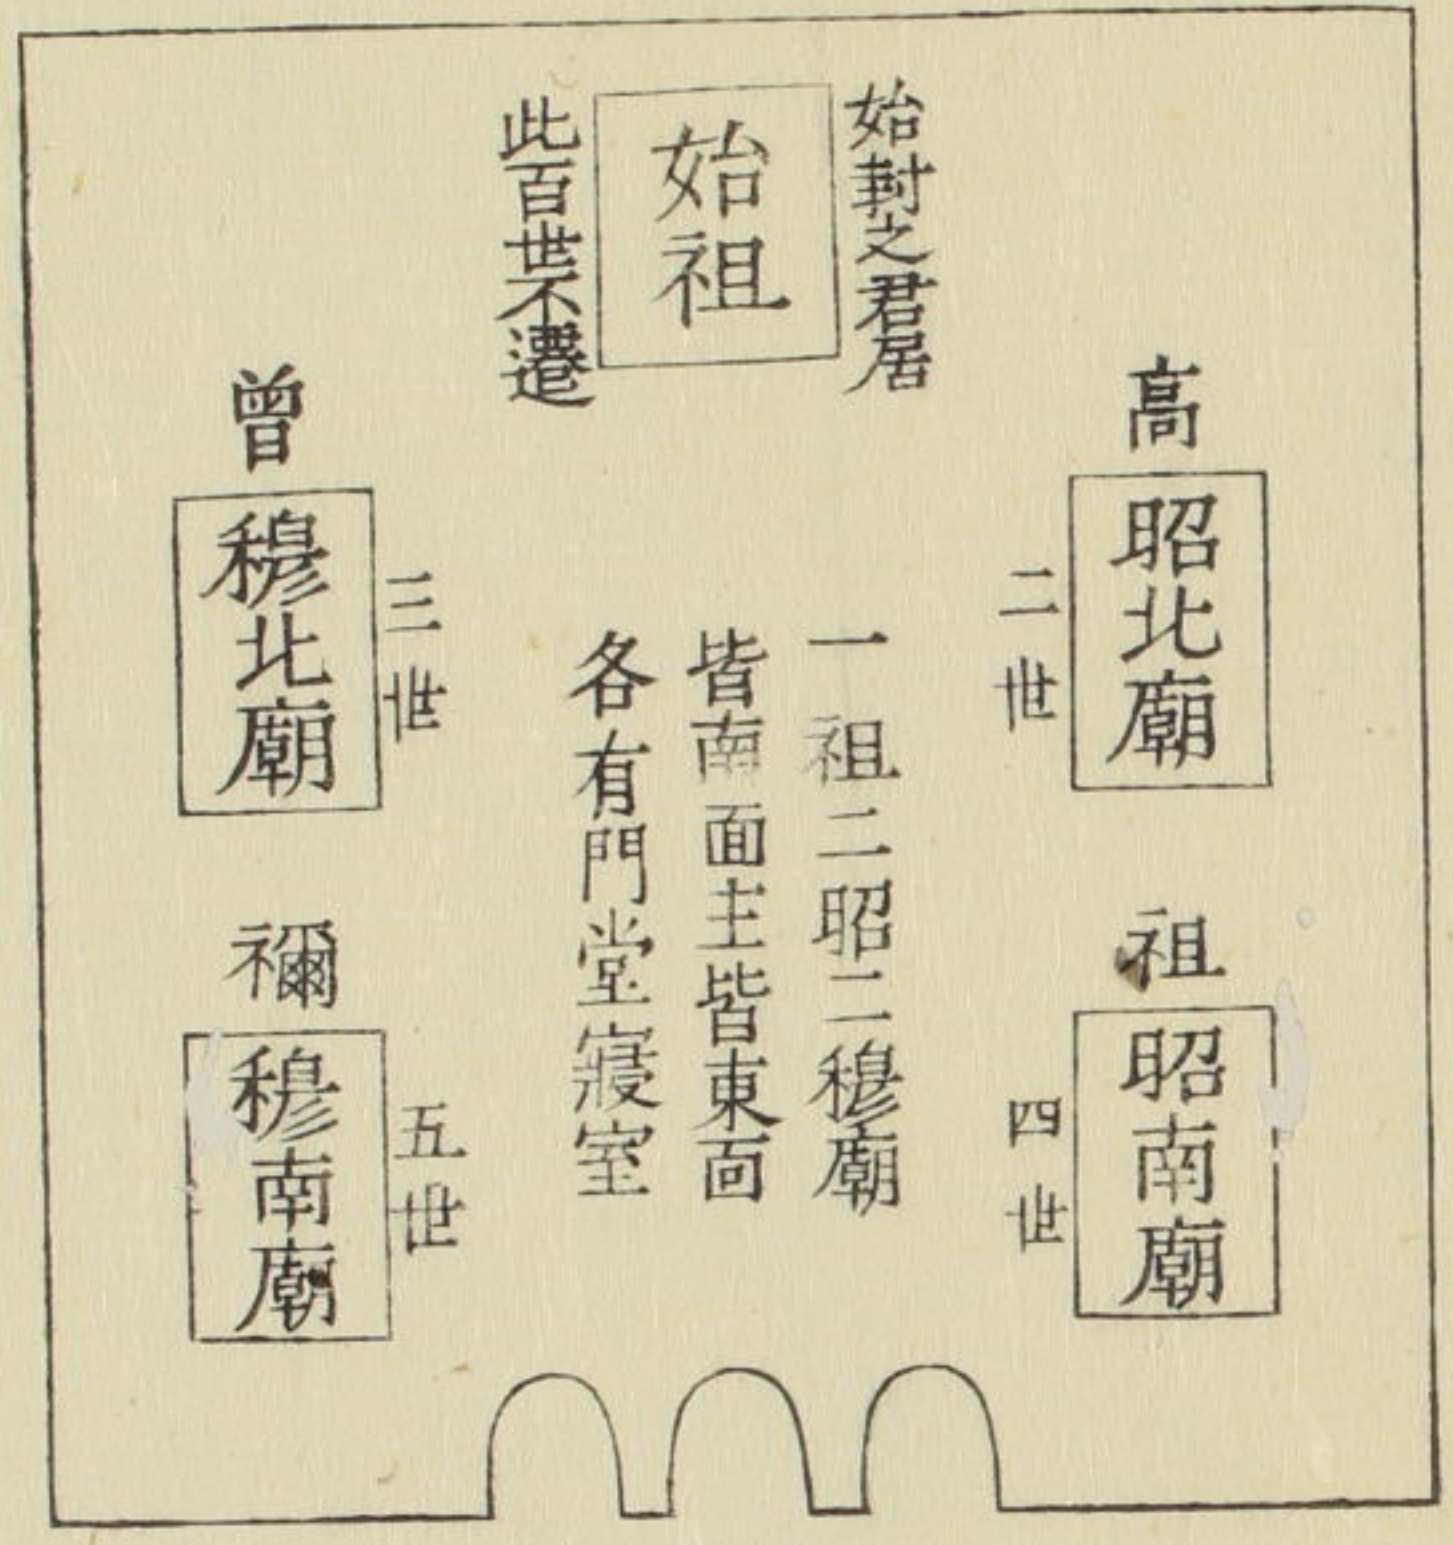 始封之君居
始祖
此百世不遷
高
昭北廟
二世
祖
昭南廟
四世
一祖二昭二穆廟
皆南面主皆東靣
各有門堂寢室
曾
三世
穆北廟
禰
五世
穆南廟